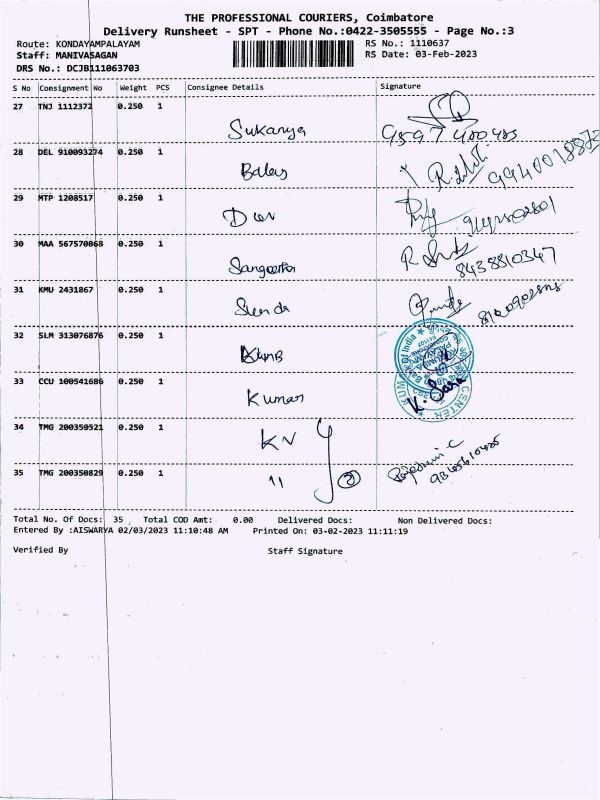 THE PROFESSIONAL COURIERS, Coimbatore
Delivery Runsheet - SPT - Phone No.:0422-3505555 - Page No.:3
Route: KONDAYAMPALAYAM RS No.: 1110637
Staff: MANIVASAGAN RS Date: 03-Feb-2023
DRS No.: DCJB111063703
S No Consignment No Weight PCS Consignee Details Signature
27 TNJ 1112372 0.250 1
Sukanya
28 DEL 910093274 0.250 1
9940018872
29 MTP 1208517 0.250 1
30 MAA 567570868 0.250 1
Sangeetha
8438810347
31 KMU 2431867 0.250 1
32 SLM 313076876 0.250 1
Bank Of India
33 CCU 100541686 0.250 1
Kumar
K. Sara
CENTER
34 TMG 200350521 0.250 1
KV
35 TMG 200350829 0.250 1
11 2
Total No. Of Docs: 35 Total COD Amt: 0.00 Delivered Docs: Non Delivered Docs:
Entered By :AISWARYA 02/03/2023 11:10:48 AM Printed On: 03-02-2023 11:11:19
Verified By Staff Signature